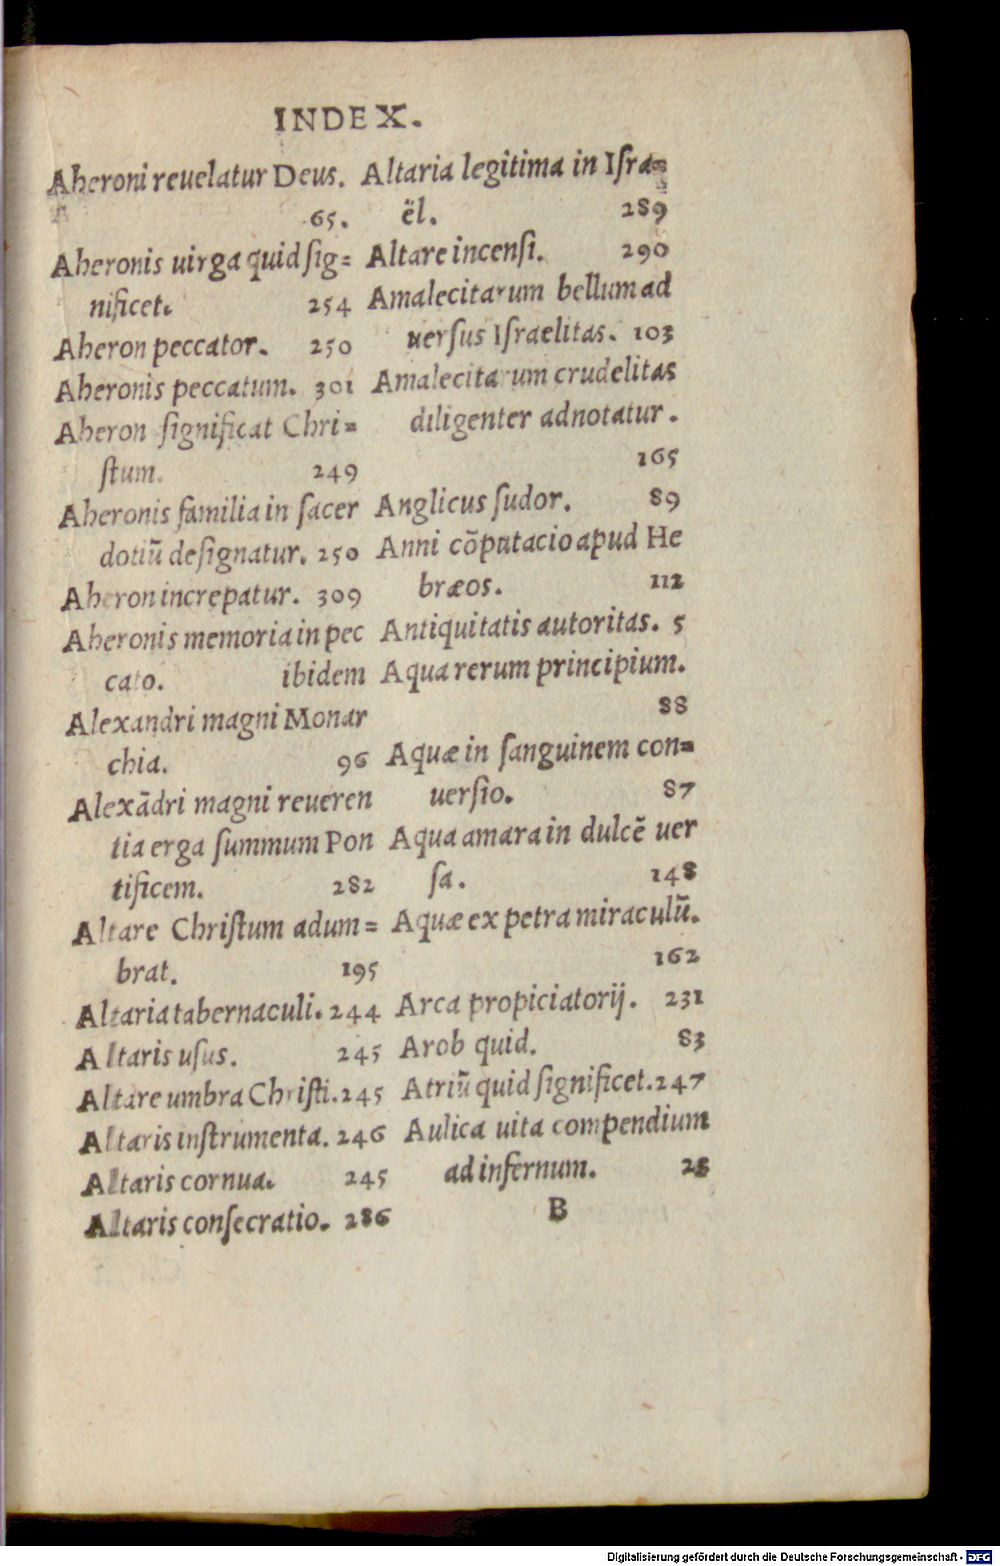 INDEX.
Aheroni reuelatur Deus.
65.
Aheronis uirga quid sig=
nificet. 254
Aheron peccator. 250
Aheronis peccatum. 301
Aheron significat Chri=
ſtum. 249
Aheronis familia in ſacer
dotiũ deſignatur. 250
Aheron increpatur. 309
Aheronis memoria in pec
cato. ibidem
Alexandri magni Monar
chia. 96
Alexãdri magni reueren
tia erga ſummum Pon
tificem. 282
Altare Chriſtum adum=
brat. 195
Altaria tabernaculi. 244
Altaris uſus. 245
Altare umbra Chriſti. 245
Altaris inſtrumenta. 246
Altaris cornua. 245
Altaris conſecratio. 286
Altaria legitima in Iſra=
ël. 289
Altare incenſi. 290
Amalecitarum bellum ad
uerſus Iſraelitas. 103
Amalecitarum crudelitas
diligenter adnotatur.
165
Anglicus ſudor. 89
Anni cõputacio apud He
bræos. 112
Antiquitatis autoritas. 5
Aqua rerum principium.
88
Aquæ in ſanguinem con=
uerſio. 87
Aqua amara in dulcẽ uer
ſa. 148
Aquæ ex petra miraculũ.
162
Arca propiciatorij. 231
Arob quid. 83
Atriũ quid ſignificet. 247
Aulica uita compendium
ad infernum. 28
B
Digitalisierung gefördert durch die Deutsche Forschungsgemeinschaft - DFG